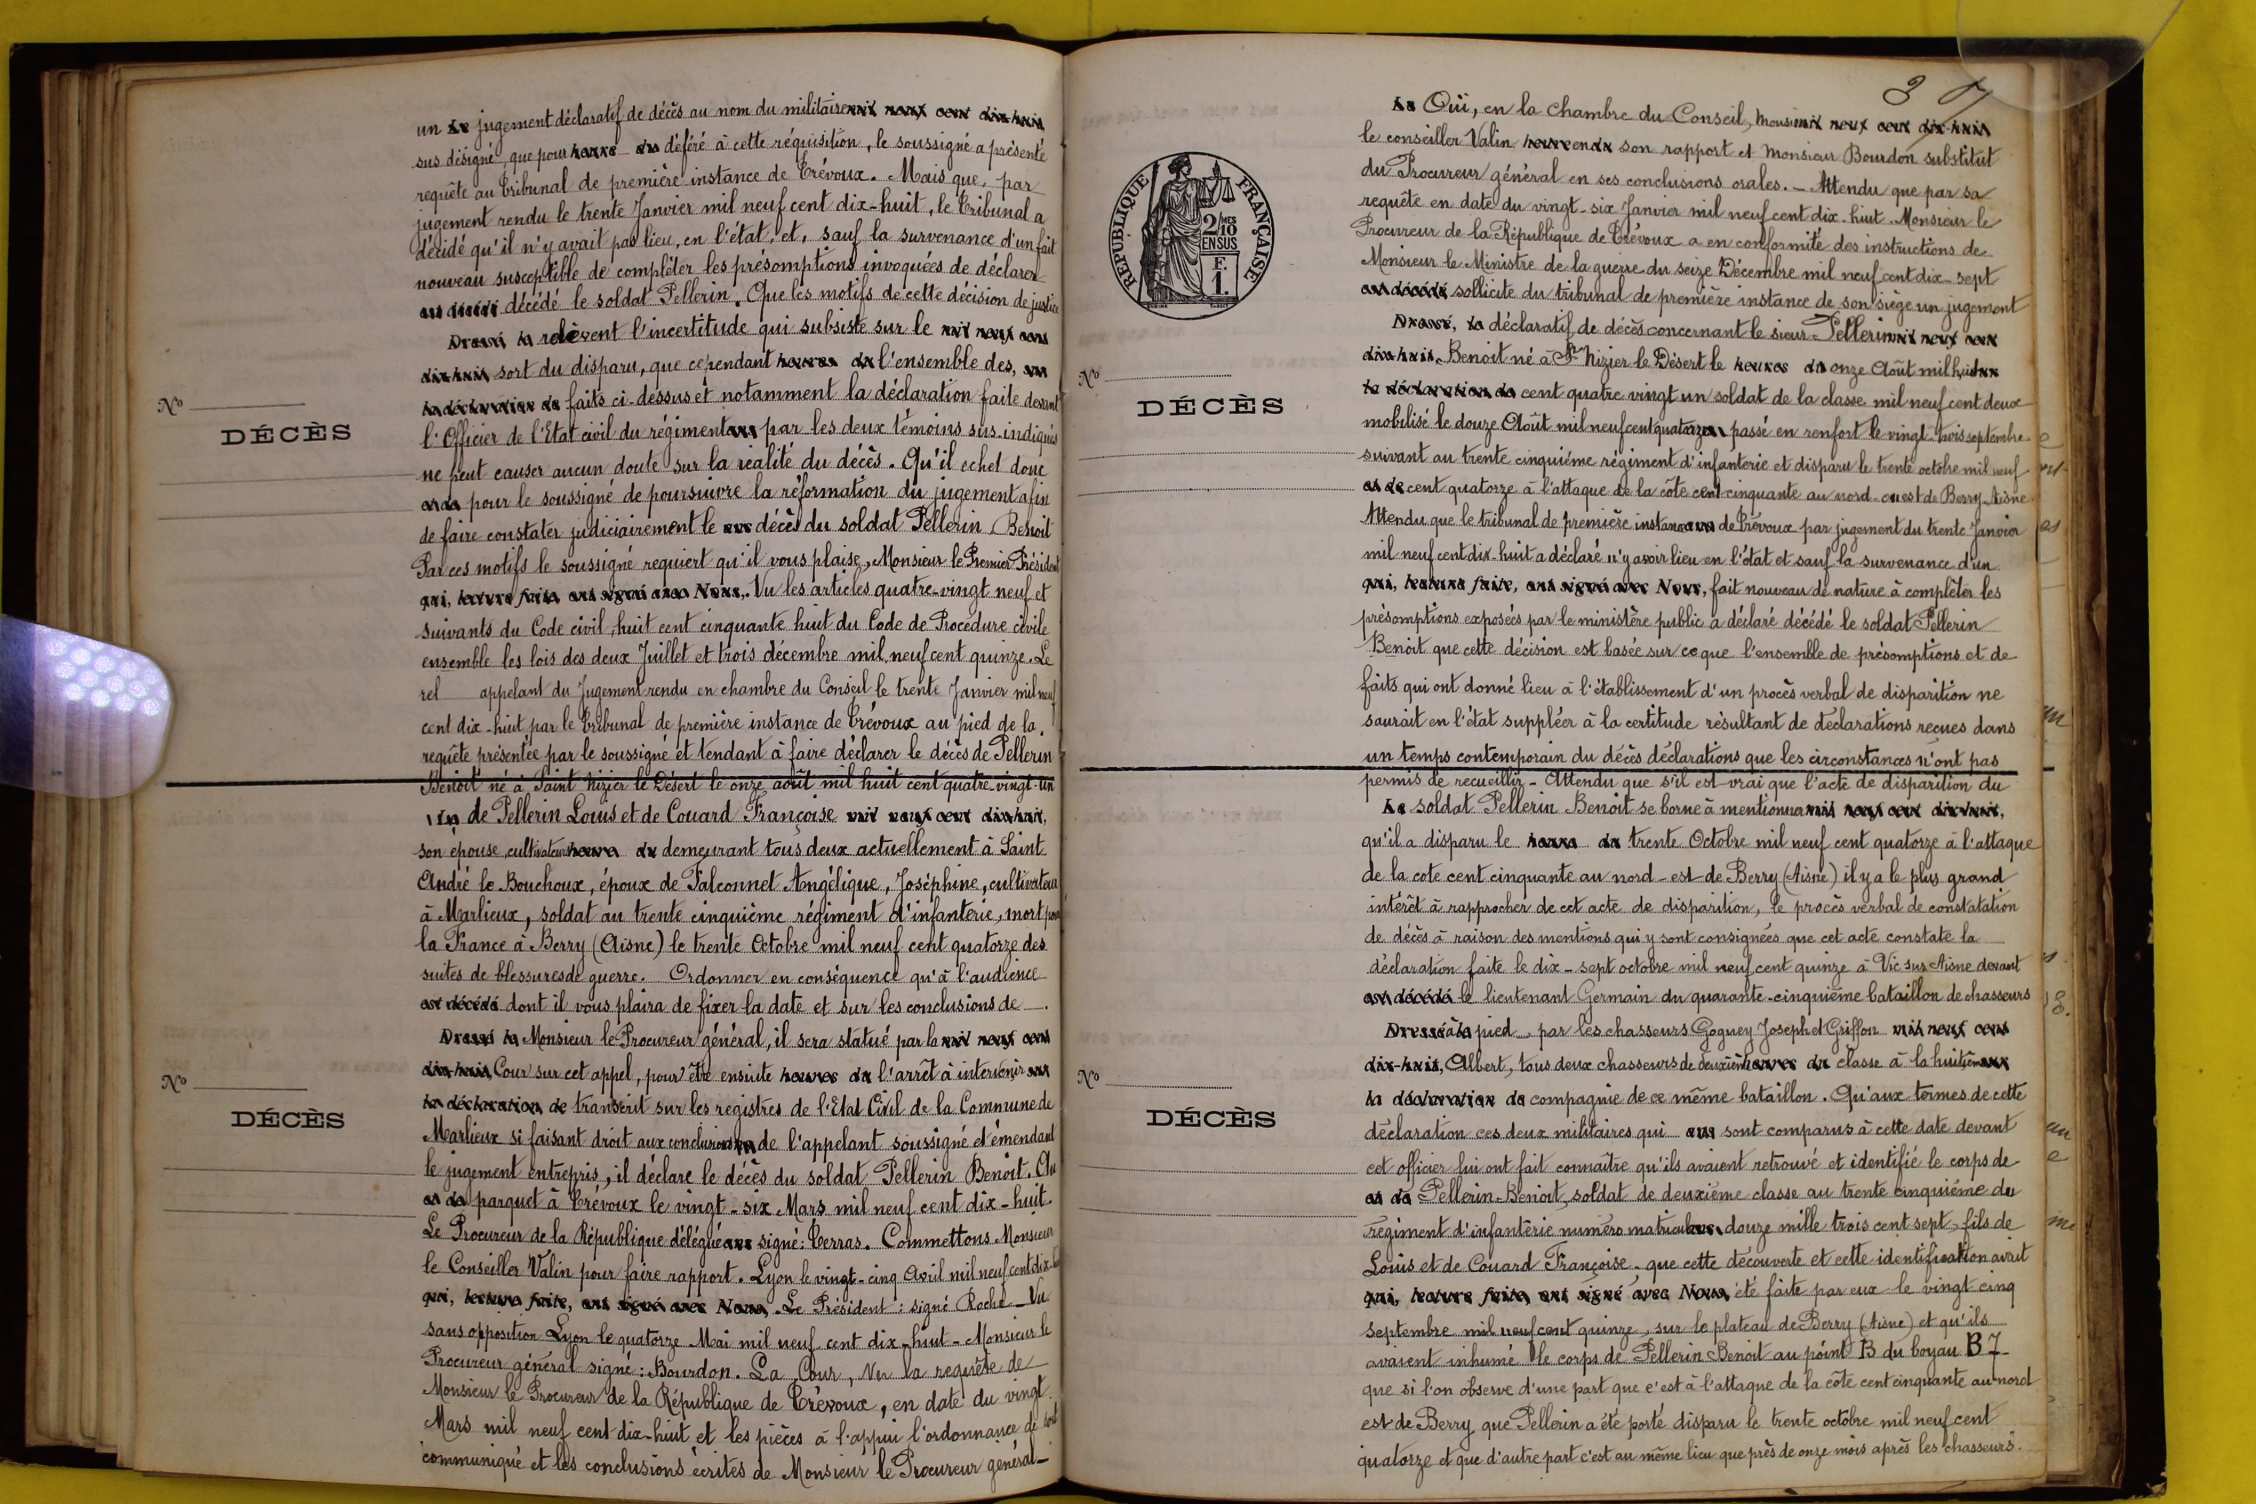 un jugement déclaratif de décès au nom du militaire mil neuf cent dix-huit
sus désigné, que pour heure du déféré à cette réquisition, le soussigné a présenté
requête au Tribunal de première instance de Trévoux. Mais que, par
jugement rendu le trente Janvier mil neuf cent dix-huit, le Tribunal a
décidé qu'il n'y avait pas lieu, en l'état, et, sauf la survenance d'un fait
nouveau susceptible de compléter les présomptions invoquées de déclarer
est décédé décédé le soldat Pellerin. Que les motifs de cette décision de justice
Dressé, la relèvent l'incertitude qui subsiste sur le mil neuf cent
dix-huit sort du disparu, que cependant heures du l'ensemble des, sur
la déclaration de faits ci-dessus et notamment la déclaration faite devant
l'Officier de l'Etat civil du régiment ans par les deux témoins sus-indiqués
Nº
DÉCÈS
ne peut causer aucun doute sur la réalité du décès. Qu'il echet donc
et de pour le soussigné de poursuivre la réformation du jugement afin
de faire constater judiciairement le ans décès du soldat Pellerin Benoit
Par ces motifs le soussigné requiert qu'il vous plaise, Monsieur le Premier Président
qui, lecture faite, ont signé avec Nous, Vu les articles quatre-vingt neuf et
suivants du Code civil, huit cent cinquante huit du Code de Procédure civile
ensemble les lois des deux Juillet et trois décembre mil neuf cent quinze. Le
rel appelant du Jugement rendu en chambre du Conseil le trente Janvier mil neuf
cent dix-huit par le Tribunal de première instance de Trévoux au pied de la
requête présentée par le soussigné et tendant à faire déclarer le décès de Pellerin
Benoit né à Saint Nizier le Désert le onze août mil huit cent quatre-vingt-un
Le de Pellerin Louis et de Couard Françoise mil neuf cent dix-huit,
son épouse, cultivateurs heure du demeurant tous deux actuellement à Saint
André le Bouchoux, époux de Falconnet Angélique, Joséphine, cultivateur
à Marlieux, soldat au trente cinquième régiment d'infanterie, mort pour
la France à Berry (Aisne) le trente Octobre mil neuf cent quatorze des
suites de blessures de guerre. Ordonner en conséquence qu'à l'audience
est décédé dont il vous plaira de fixer la date et sur les conclusions de
Dressé la Monsieur le Procureur général, il sera statué par la mil neuf cent
dix-huit, Cour sur cet appel, pour être ensuite heures du l'arrêt à intervenir sur
la déclaration de transcrit sur les registres de l'Etat Civil de la Commune de
Nº
DÉCÈS
Marlieux si faisant droit aux conclusions de l'appelant soussigné et émendant
le jugement entrepris, il déclare le décès du soldat Pellerin Benoit. Au
et de parquet à Trévoux le vingt-six Mars mil neuf cent dix-huit.
Le Procureur de la République délégué ans signé: Terras. Commettons Monsieur
le Conseiller Valin pour faire rapport. Lyon le vingt-cinq Avril mil neuf cent dix-huit
qui, lecture faite, ont signé avec Nous, Le Président: signé Roche_ Vu
sans opposition Lyon le quatorze Mai mil neuf cent dix-huit - Monsieur le
Procureur général signé: Bourdon. La Cour, Vu la requête de
Monsieur le Procureur de la République de Trévoux, en date du vingt
Mars mil neuf cent dix-huit et les pièces à l'appui l'ordonnance de soit
communiqué et les conclusions écrites de Monsieur le Procureur général_
Le Oui, en la chambre du Conseil, Monsi mil neuf cent dix-huit
le conseiller Valin heure en du son rapport et Monsieur Bourdon substitut
du Procureur général en ses conclusions orales. _ Attendu que par sa
requête en date du vingt-six Janvier mil neuf cent dix-huit Monsieur le
Procureur de la République de Trévoux a en conformité des instructions de
Monsieur le Ministre de la guerre du seize Décembre mil neuf cent dix-sept
est décédé sollicite du tribunal de première instance de son siège un jugement
RÉPUBLIQUE FRANÇAISE
2/10 MES
EN SUS
F.
1.
Dressé, la déclaratif de décès concernant le sieur Pellerin mil neuf cent
dix-huit, Benoit né à St Nizier le Désert le heures du onze Août mil huit sur
la déclaration de cent quatre vingt un soldat de la classe mil neuf cent deux
Nº
DÉCÈS
mobilisé le douze Août mil neuf cent quatorze passé en renfort le vingt-trois septembre
suivant au trente cinquième régiment d'infanterie et disparu le trente octobre mil neuf
et de cent quatorze à l'attaque de la côte cent cinquante au nord-ouest de Berry Aisne
Attendu que le tribunal de première instance ans de Trévoux par jugement du trente Janvier
mil neuf cent dix-huit a déclaré n'y avoir lieu en l'état et sauf la survenance d'un
qui, lecture faite, ont signé avec Nous, fait nouveau de nature à compléter les
présomptions exposées par le ministère public a déclaré décédé le soldat Pellerin
Benoit que cette décision est basée sur ce que l'ensemble de présomptions et de
faits qui ont donné lieu à l'établissement d'un procès verbal de disparition ne
saurait en l'état suppléer à la certitude résultant de déclarations reçues dans
un temps contemporain du décès déclarations que les circonstances n'ont pas
permis de recueillir - Attendu que s'il est vrai que l'acte de disparition du
Le soldat Pellerin Benoit se borne à mentionner mil neuf cent dix-huit,
qu'il a disparu le heure du trente Octobre mil neuf cent quatorze à l'attaque
de la cote cent cinquante au nord-est de Berry (Aisne) il y a le plus grand
intérêt à rapprocher de cet acte de disparition, le procès verbal de constatation
de décès à raison des mentions qui y sont consignées que cet acte constate la
déclaration faite le dix-sept octobre mil neuf cent quinze à Vic sur Aisne devant
est décédé le lieutenant Germain du quarante-cinquième bataillon de chasseurs
Dressé à la pied par les chasseurs Goguey Joseph et Griffon mil neuf cent
dix-huit, Albert, tous deux chasseurs de deuxième heures du classe à la huitième sur
la déclaration de compagnie de ce même bataillon. Qu'aux termes de cette
Nº
DÉCÈS
déclaration ces deux militaires qui ans sont comparus à cette date devant
cet officier lui ont fait connaître qu'ils avaient retrouvé et identifié le corps de
et de Pellerin-Benoit, soldat de deuxième classe au trente cinquième du
régiment d'infanterie numéro matricule ans, douze mille trois cent sept, fils de
Louis et de Couard Françoise - que cette découverte et cette identification avait
qui, lecture faite, ont signé avec Nous, été faite par eux le vingt cinq
septembre mil neuf cent quinze, sur le plateau de Berry (Aisne) et qu'ils
avaient inhumé le corps de Pellerin Benoit au point B du boyau B7_
que si l'on observe d'une part que c'est à l'attaque de la côte cent cinquante au nord
est de Berry que Pellerin a été porté disparu le trente octobre mil neuf cent
quatorze et que d'autre part c'est au même lieu que près de onze mois après les chasseurs